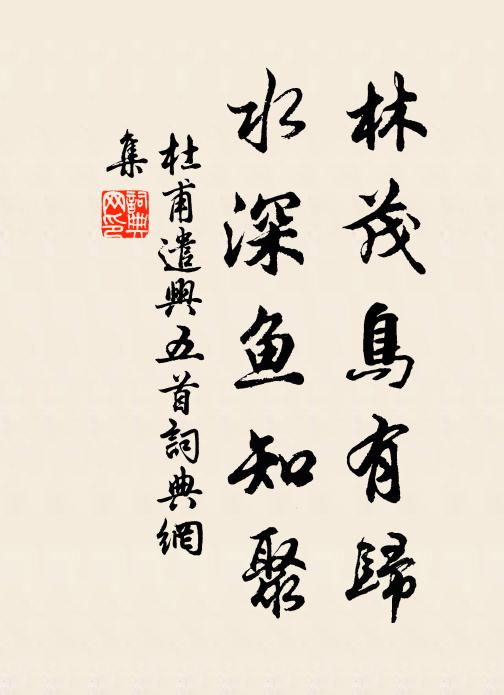 林茂鳥有歸
水深鱼知聚
杜甫遣興五首詞典網
集
詞典
网印